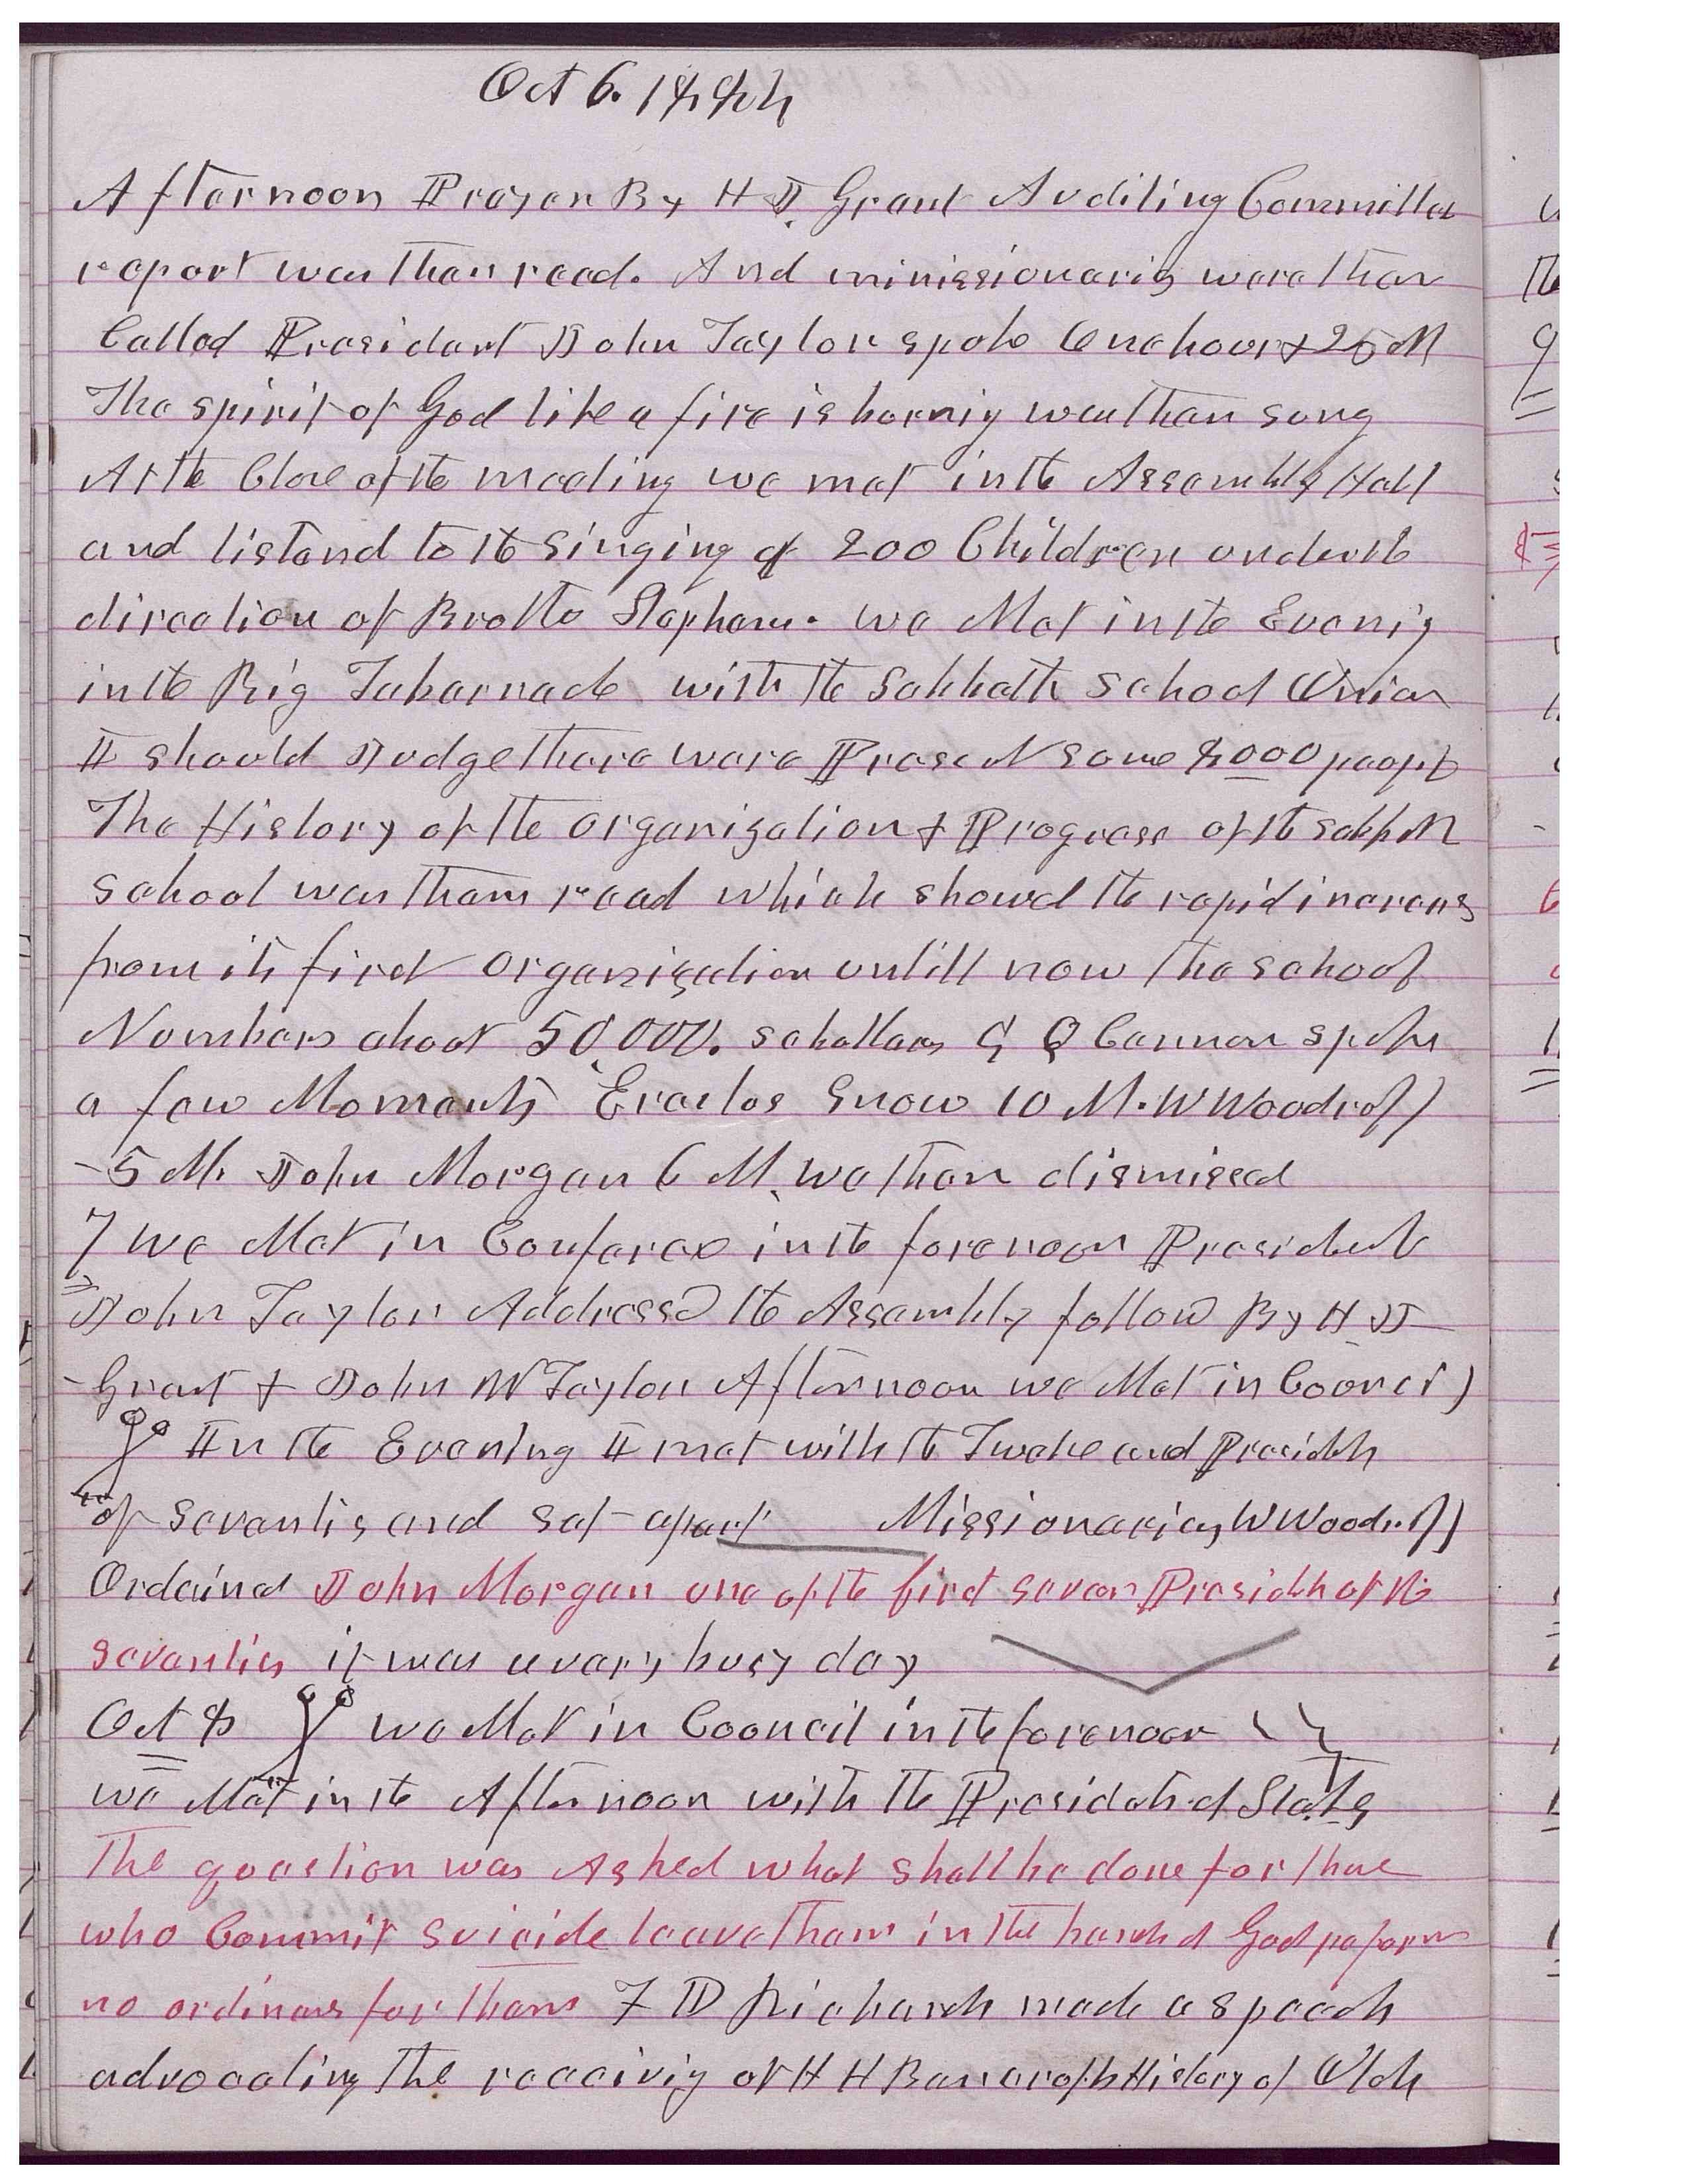 Oct 6. 1884
Afternoon Prayer By H J Grant Auditing Committee
report was then read. And minissionaries were then
Called President John Taylor spoke One hour & 25 M
The spirit of God like a fire is burnig was then sung
At the Close of the meeting we met in the Assembly Hall
and listend to the singing of 200 Children under the
direction of Brother Stephens. we Met in the Evenig
in the Big Tabernacle with the Sabbath School Union
I should Judge there were Present some 8000 people
The History of the organization & Progress of the sabbath
school was then read which showed the rapid increas
from its first organization untill now the school
Numbers about 50,000. schollars G Q Cannon spoke
a few Moments Erastus Snow 10 M. W Woodruff
-5 M. John Morgan 6 M. we then dismissed
7 we Met in Conference in the forenoon President
John Taylor Addressed the Assembly follow By H J
Grant & John W Taylor Afternoon we Met in Council
In the Evening I met with the Twelve and Presidets
of seventies and set apart Missionaries W Woodruff
Ordained John Morgan one of the first seven Presidets of the
seventies it was a very busy day
Oct 8 we Met in Council in the forenoon
we Met in the Afternoon with the Presidets of Stakes
The question was Asked what shall be done for those
who Commit suicide leave them in the hands of God peform
no ordinances for them F D Richards made a speech
advocating the receivig of H H Bancrofts History of Utah